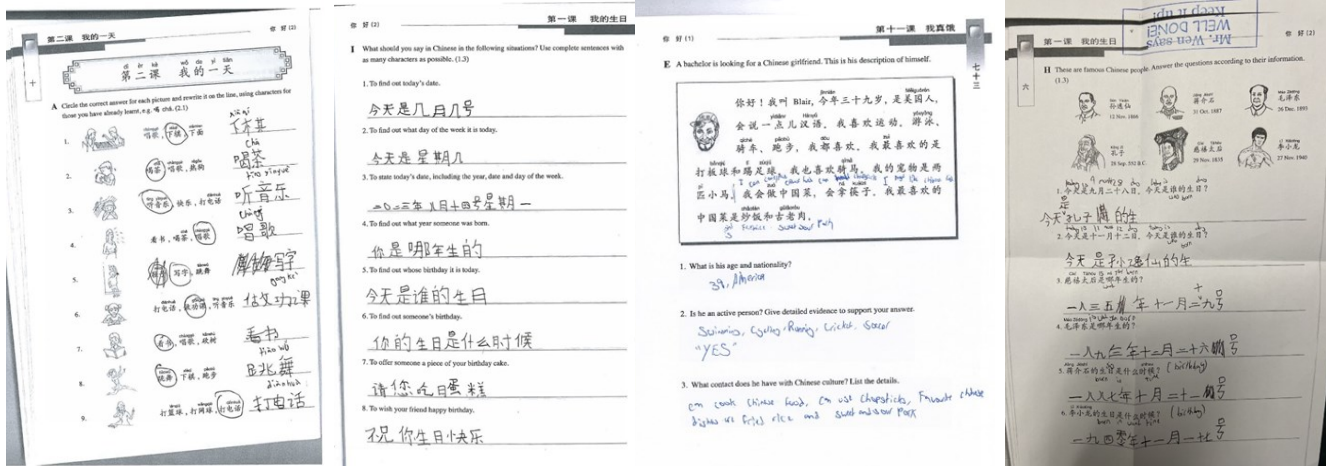 第二课 我的一天
你 好 (2)
十
dì èr kè wǒ de yì tiān
第二课 我的一天
A Circle the correct answer for each picture and rewrite it on the line, using characters for
those you have already learnt, e.g. 喝 chá. (2.1)
1. 唱歌，下棋，下面
下棋
chá
2. 喝茶，唱歌，热狗
喝茶
3. 听音乐，快乐，打电话
听音乐
4. 看书，喝茶，唱歌
唱歌
5. 写字，跳舞
写字
6. 打电话，做功课，听音乐
做功课
7. 看书
看书
8. 跳舞，下棋，跑步
跳舞
9. 打篮球，打网球，打电话
打电话
你 好 (2)
第一课 我的生日
I What should you say in Chinese in the following situations? Use complete sentences with
as many characters as possible. (1.3)
1. To find out today's date.
今天是几月几号
2. To find out what day of the week it is today.
今天是星期几
3. To state today's date, including the year, date and day of the week.
二〇二三年八月十四号星期一
4. To find out what year someone was born.
你是哪年生的
5. To find out whose birthday it is today.
今天是谁的生日
6. To find out someone's birthday.
你的生日是什么时候
7. To offer someone a piece of your birthday cake.
请您吃日蛋糕
8. To wish your friend happy birthday.
祝你生日快乐
你 好 (1)
第十一课 我真饿
七十三
E A bachelor is looking for a Chinese girlfriend. This is his description of himself.
你好！我叫 Blair，今年三十九岁，是美国人，
会说一点儿汉语。我喜欢运动。游泳、
骑车、跑步，我都喜欢。我最喜欢的是
打板球和踢足球。我也喜欢骑马。我的宠物是两
匹小马。我会做中国菜，会拿筷子。我最喜欢的
中国菜是炒饭和古老肉。
1. What is his age and nationality?
39, America
2. Is he an active person? Give detailed evidence to support your answer.
Swimming, Cycling, Running, Cricket, Soccer
"YES"
3. What contact does he have with Chinese culture? List the details.
can cook Chinese food, Can use Chopsticks, Favourite chinese
dishes are fried rice and sweet and sour Pork
Mr. Wen says
WELL DONE!
Keep it up!
第一课 我的生日
你 好 (2)
六
H These are famous Chinese people. Answer the questions according to their information.
(1.3)
孙逸仙
12 Nov. 1866
蒋介石
31 Oct. 1887
毛泽东
26 Dec. 1893
孔子
28 Sep. 552 B.C.
慈禧太后
29 Nov. 1835
李小龙
27 Nov. 1940
1. 今天是九月二十八日。今天是谁的生日？
今天是孔子的生
2. 今天是十一月十二日。今天是谁的生日？
今天是孙逸仙的生
3. 慈禧太后是哪年生的？
一八三五年十一月二十九号
4. 毛泽东是哪年生的？
一八九三年十二月二十六号
5. 蒋介石的生日是什么时候？ (birthday)
一八八七年十月三十一号
6. 李小龙的生日是什么时候？ (birthday)
一九四零年十一月二十七号